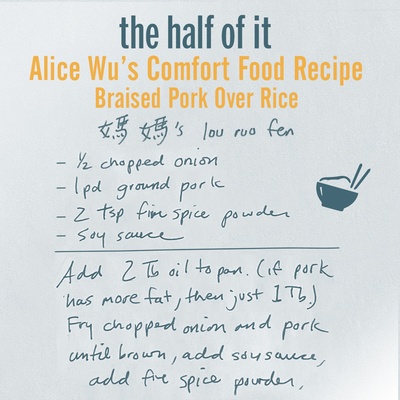 the half of it
Alice Wu's Comfort Food Recipe
Braised Pork Over Rice
媽媽's lou ruo fen
- ½ chopped onion
- 1 pd ground pork
- 2 tsp five spice powder
- soy sauce
Add 2 Tb oil to pan. (if pork
has more fat, then just 1 Tb.)
Fry chopped onion and pork
until brown, add soy sauce,
add five spice powder,